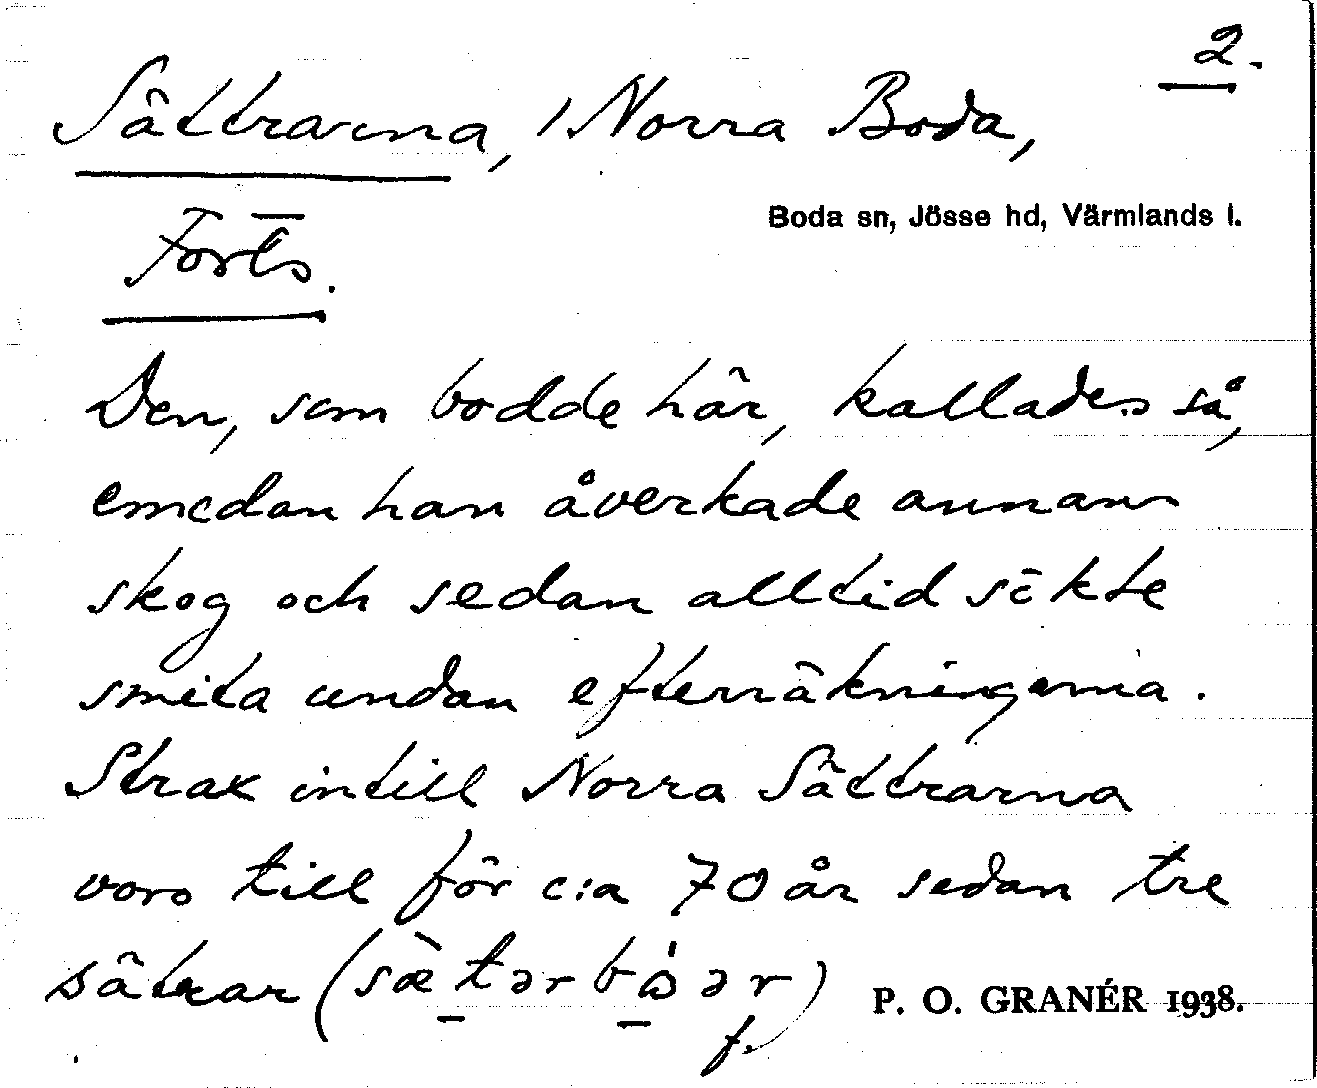 2.
Sättrarna, i Norra Boda,
Boda sn, Jösse hd, Värmlands l.
Forts.
Den, som bodde här, kallades så,
emedan han åverkade annans
skog och sedan alltid sökte
smita undan efterräkningarna.
Strax intill Norra Sättrarna
voro till för c:a 70 år sedan tre
sätrar (
P. O. GRANÉR 1938.
f.